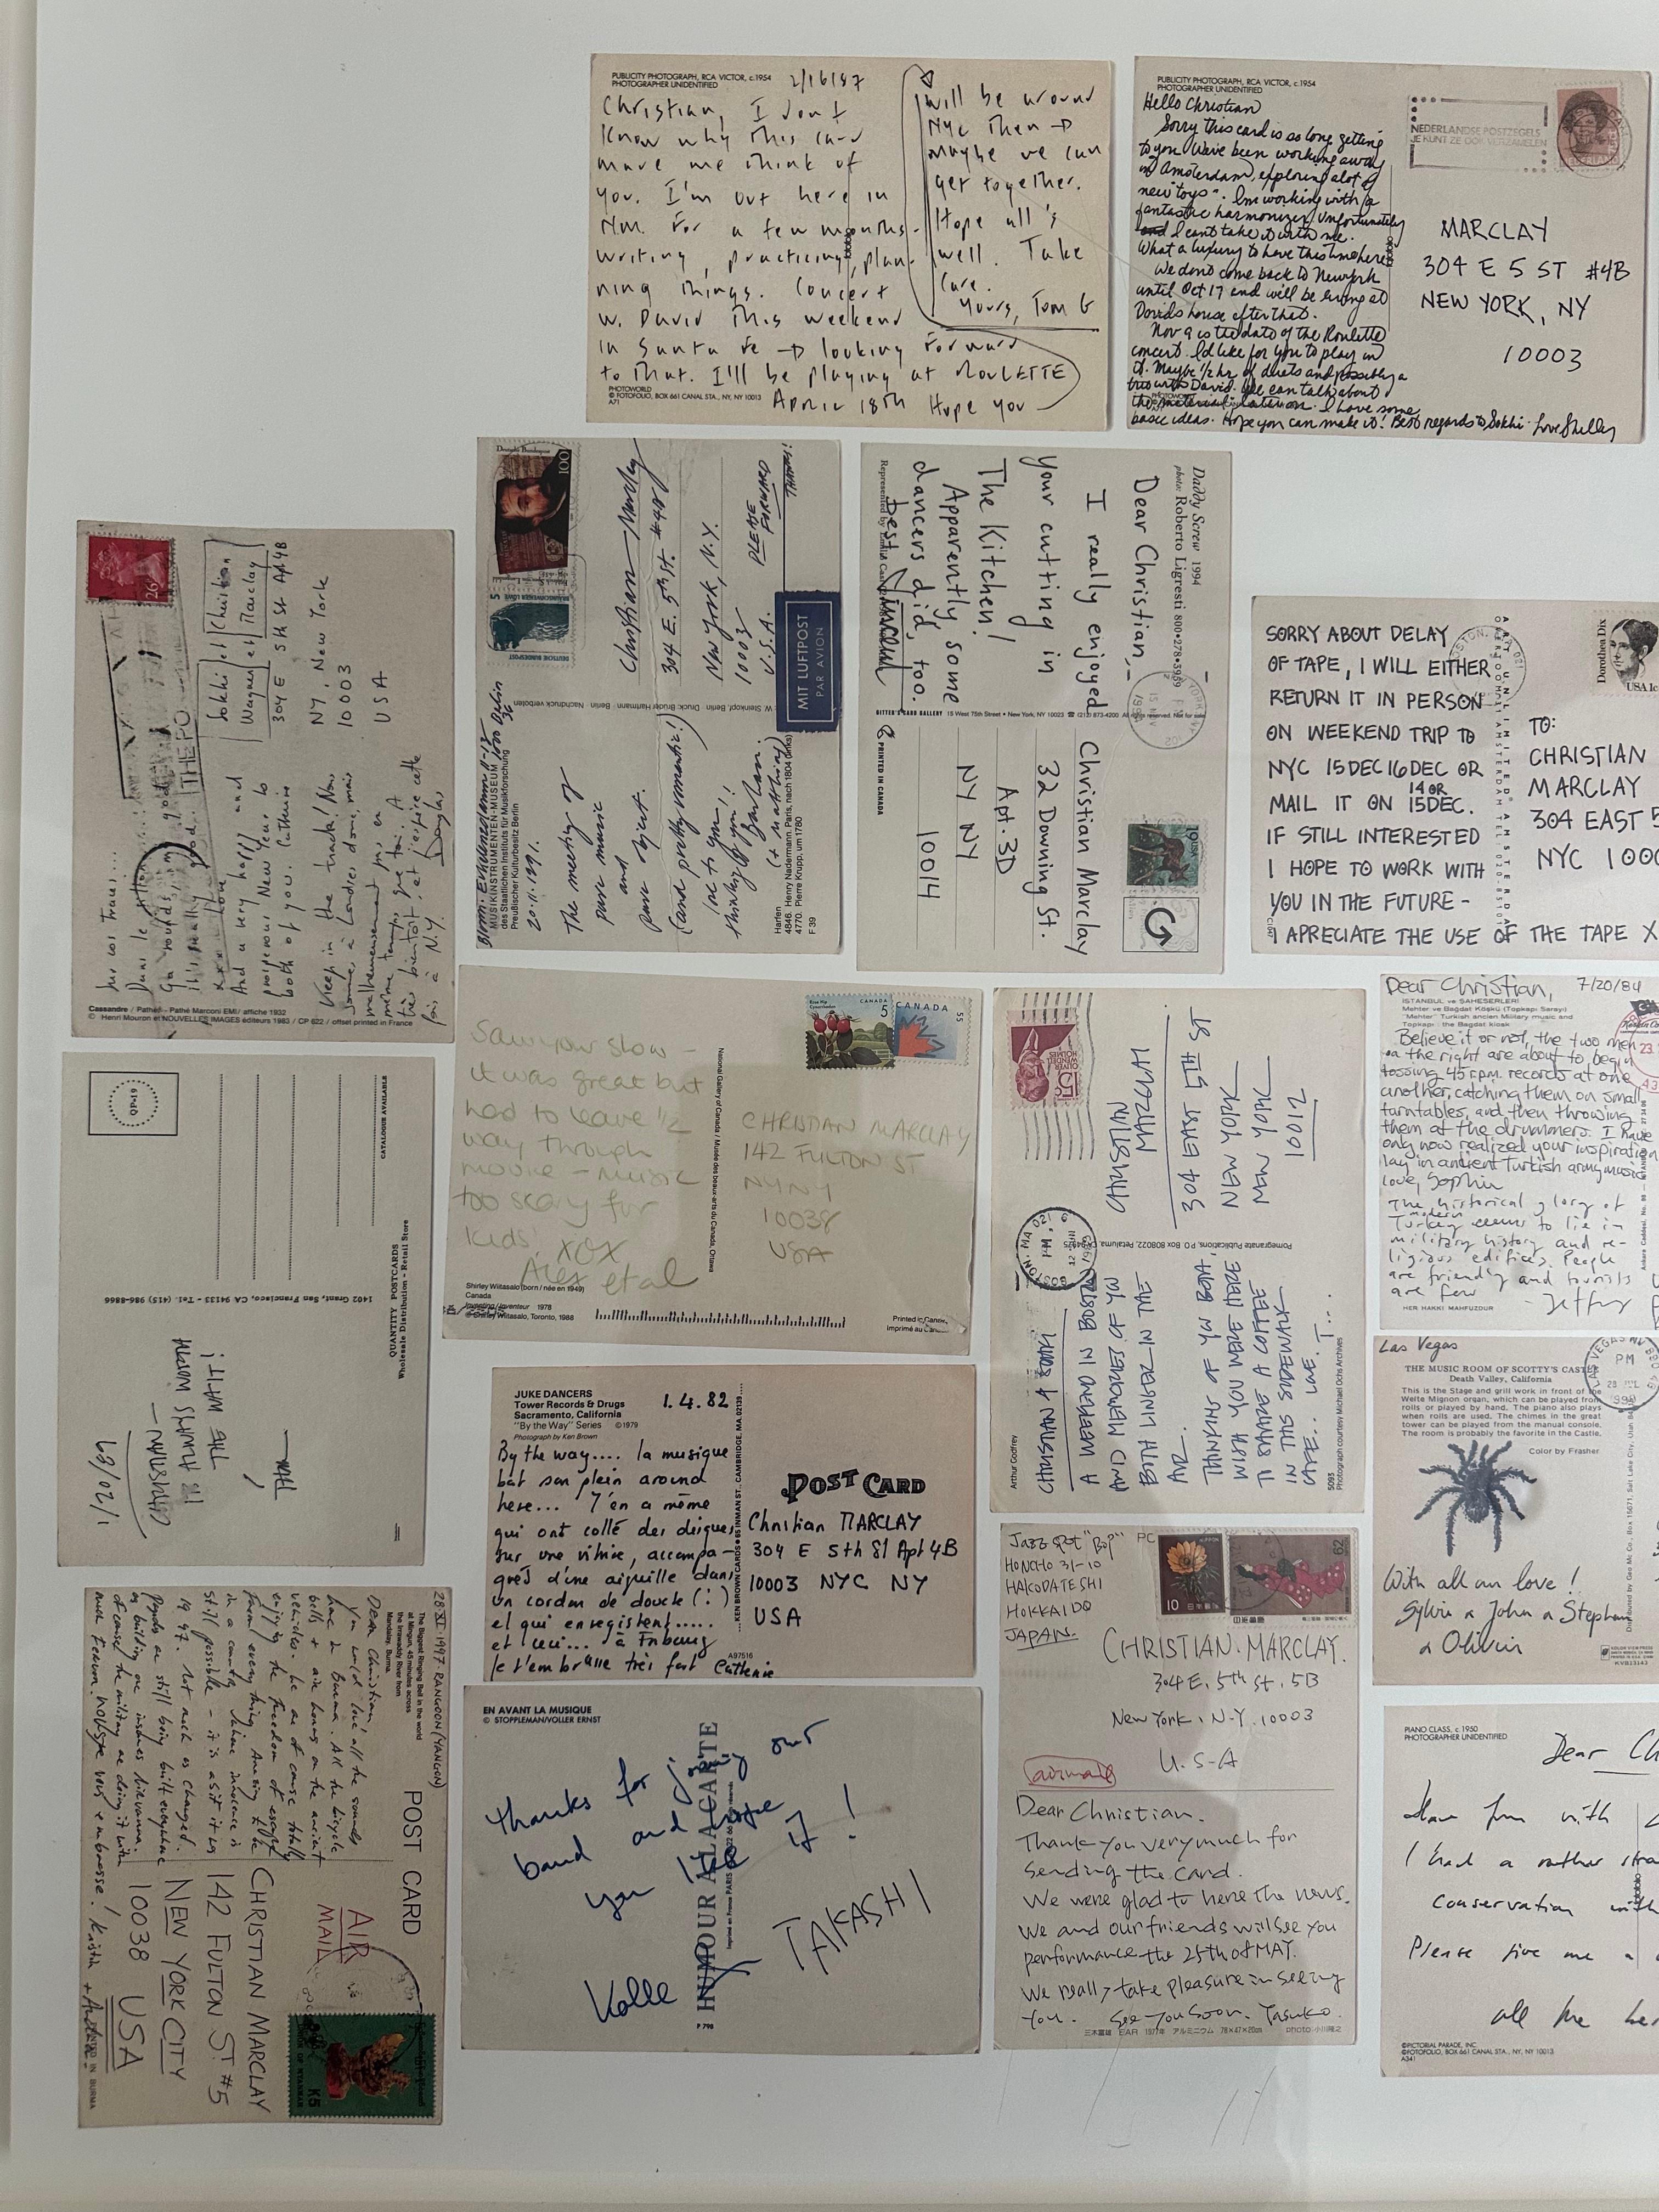 PUBLICITY PHOTOGRAPH, RCA VICTOR, c.1954
PHOTOGRAPHER UNIDENTIFIED
2/16/87
Christian, I don't
know why this card
made me think of
you. I'm out here in
N.M. for a few months -
writing, practicing, plan-
ning things. Concert
w. David this weekend
in Santa Fe → looking forward
to that. I'll be playing at ROULETTE
April 18th Hope you
will be around
NYC then →
maybe we can
get together.
Hope all's
well. Take
Care.
Yours, Tom G
PHOTOWORLD
© FOTOFOLIO, BOX 661 CANAL STA., NY, NY 10013
A71
PUBLICITY PHOTOGRAPH, RCA VICTOR, c.1954
PHOTOGRAPHER UNIDENTIFIED
Hello Christian
Sorry this card is so long getting
to you. We've been working away
in Amsterdam, exploring alot of
new "toys". I'm working with a
fantastic harmonizer. Unfortunately
I can't take it with me.
What a luxury to have this time here!
We don't come back to New York
until Oct 17 and will be living at
David's house after that.
Nov 9 is the date of the Roulette
concert. I'd like for you to play in
it. Maybe ½ hr of duets and possibly a
trio with David. We can talk about
the material later on. I have some
basic ideas. Hope you can make it! Best regards to Sokhi. Love Shelly
NEDERLANDSE POSTZEGELS
JE KUNT ZE OOK VERZAMELEN
MARCLAY
304 E 5 ST #4B
NEW YORK, NY
10003
26
THE PO
Sokhi et Christian
Wagner et Marclay
304 E 5th St Apt 4B
NY, New York
10003
USA
it's really good.
And a very happy and
prosperous New Year to
both of you. Catherine
Keep in the track! Nous
sommes à Londres donc, mais
malheureusement pas en
même temps que toi. A
très bientôt, et j'espère cette
fois à N.Y. Douglas,
Cassandre / Pathé - Pathé Marconi EMI / affiche 1932
© Henri Mouron et NOUVELLES IMAGES éditeurs 1983 / CP 622 / offset printed in France
100
5
DEUTSCHE BUNDESPOST
Christian Marclay
304 E. 5th St. #4B
New York, N.Y.
10003
U.S.A.
PLEASE
FORWARD
THANKS!
MIT LUFTPOST
PAR AVION
MUSIKINSTRUMENTEN-MUSEUM
des Staatlichen Instituts für Musikforschung
Preußischer Kulturbesitz Berlin
20.11.1991.
The meeting of
pure music
and
pure object.
(and pretty romantic!)
Love to you,
thinking of you!!
(+ Matthias)
Harfen
4846. Henry Nadermann, Paris, nach 1804 (links)
4770. Pierre Krupp, um 1780
F 39
W. Steinkopf, Berlin · Druck: Brüder Hartmann · Berlin · Nachdruck verboten
Daddy Screw 1994
photo: Roberto Ligresti 800•278•3959
Dear Christian,
I really enjoyed
your cutting in
The Kitchen!
Apparently some
dancers did, too.
Best
BITTER'S CARD GALLERY 15 West 75th Street • New York, NY 10023 ☎ (212) 873-4200 All rights reserved. Not for sale
PRINTED IN CANADA
Christian Marclay
32 Downing St.
Apt. 3D
NY NY
10014
19USA
SORRY ABOUT DELAY
OF TAPE, I WILL EITHER
RETURN IT IN PERSON
ON WEEKEND TRIP TO
NYC 15DEC 16DEC OR
MAIL IT ON 14 OR 15DEC.
IF STILL INTERESTED
I HOPE TO WORK WITH
YOU IN THE FUTURE -
I APRECIATE THE USE OF THE TAPE X
ART UNLIMITED AMSTERDAM
Dorothea Dix
USA 1c
TO:
CHRISTIAN
MARCLAY
304 EAST 5
NYC 100
QP-19
CATALOGUE AVAILABLE
QUANTITY POSTCARDS
Wholesale Distribution - Retail Store
1402 Grant, San Francisco, CA 94133 - Tel: (415) 986-8866
1/20/89
CHRISTIAN -
WHAT'S IT ALWAYS MORON
THE WAIT!
Saw your show -
it was great but
had to leave ½
way through
movie - music
too scary for
kids.
XOX
Alex et al
CANADA
5
CANADA
55
CHRISTIAN MARCLAY
142 FULTON ST
NY NY
10038
USA
National Gallery of Canada / Musée des beaux-arts du Canada, Ottawa
Shirley Wiitasalo (born / née en 1949)
Canada
Investing / Inventeur 1978
© Shirley Wiitasalo, Toronto, 1988
Printed in Canada
Imprimé au Canada
OLIVER WENDELL HOLMES
15c
CHRISTIAN
MARCLAY
304 EAST 5TH ST
NEW YORK
NEW YORK
10012
BOSTON, MA 021
PM
Pomegranate Publications, P.O. Box 808022, Petaluma, CA 94975
Arthur Godfrey
CHRISTIAN & SOKHI
A WEEKEND IN BOSTON
AND MEMORIES OF YOU
BOTH LINGER IN THE
AIR.
THINKING OF YOU BOTH,
WISH YOU WERE HERE
TO SHARE A COFFEE
IN THIS SIDEWALK
CAFE.. LOVE. T...
5093
Photograph courtesy Michael Ochs Archives
Dear Christian, 7/20/84
ISTANBUL ve SAHESERLERI
Mehter ve Bağdat Köşkü (Topkapı Sarayı)
"Mehter" Turkish ancien Military music and
Topkapı: the Bagdat kiosk
Believe it or not, the two men
on the right are about to begin
tossing 45 r.p.m. records at one
another, catching them on small
turntables, and then throwing
them at the drummers. I have
only now realized your inspiration
lay in ancient Turkish army music
love, Sophie
The historical glory of
modern
Turkey seems to lie in
military history and re-
ligious edifices. People
are friendly and tourists
are few - Jeffrey
HER HAKKI MAHFUZDUR
JUKE DANCERS
Tower Records & Drugs
Sacramento, California
"By the Way" Series ©1979
Photograph by Ken Brown
1.4.82
By the way.... la musique
bat son plein around
here... Y'en a même
qui ont collé des disques
sur une vitrine, accompa-
gnés d'une aiguille dans
un cordon de douche (!)
et qui enregistrent.....
et ceci... à Fribourg
Je t'embrasse très fort Catherine
KEN BROWN CARDS • 65 INMAN ST., CAMBRIDGE, MA. 02139
A97516
POST CARD
Christian MARCLAY
304 E 5th St Apt 4B
10003 NYC NY
USA
Las Vegas
THE MUSIC ROOM OF SCOTTY'S CASTLE
Death Valley, California
This is the Stage and grill work in front of the
Welte Mignon organ, which can be played from
rolls or played by hand. The piano also plays
when rolls are used. The chimes in the great
tower can be played from the manual console.
The room is probably the favorite in the Castle.
Color by Frasher
LAS VEGAS NV
PM
With all our love!
Sylvie & John & Stephan
& Olivier
KVB13143
28 XI 1997 · RANGOON (YANGON)
The Biggest Ringing Bell in the world
at Mingun, 45 minutes across
the Irrawaddy River from
Mandalay, Burma.
POST CARD
Dear Christian,
You would love all the sounds
here in Burma. All the bicycle
bells + air horns on the ancient
vehicles. We are of course totally
enjoying the freedom of escaping
from everything. Amazing to be
in a country where innocence is
still possible - it is as if it was
1947. Not much is changed.
Pagodas are still being built everywhere
AIR
MAIL
CHRISTIAN MARCLAY
142 FULTON ST #5
NEW YORK CITY
10038 USA
K5
PRINTED IN BURMA
EN AVANT LA MUSIQUE
© STOPPLEMAN/VOLLER ERNST
Thanks for joining our
band and hope
you like it!
TAKASHI
HUMOUR A LA CARTE
P 790
Jazz spot "Bop"
HONCHO 31-10
HAKODATE SHI
HOKKAIDO
JAPAN.
PC
10
62
CHRISTIAN. MARCLAY.
304 E. 5th St. 5B
New York. N.Y. 10003
U.S.A
airmail
Dear Christian.
Thank you very much for
sending the card.
We were glad to here the news.
We and our friends will see you
performance the 25th of MAY.
We really take pleasure in seeing
you. See you soon. Yasuko.
三木富雄 EAR 1977年 アルミニウム 78×47×20cm photo:小川隆之
PIANO CLASS, c. 1950
PHOTOGRAPHER UNIDENTIFIED
Dear Ch
Have fun with
I had a rather stra
conservation with
Please give me a
all the be
©PICTORIAL PARADE, INC.
©FOTOFOLIO, BOX 661 CANAL STA., NY, NY 10013
A341